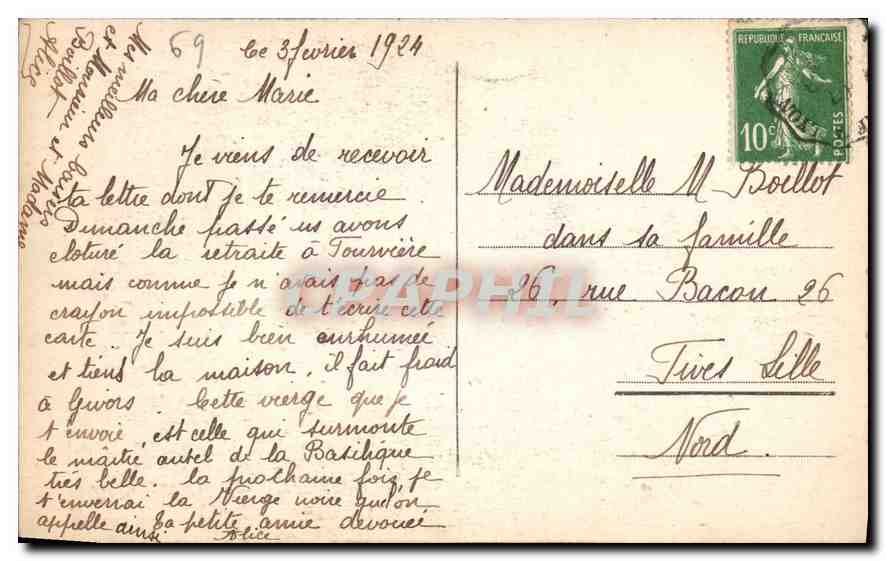 69
Ce 3 fevrier 1924
Ma chère Marie
Je viens de recevoir
ta lettre dont je te remercie.
Dimanche passé ns avons
cloturé la retraite à Fourvière
mais comme je n'avais pas de
crayon impossible de t'écrire cette
carte. Je suis bien enrhumée
et tiens la maison. il fait froid
à Givors. Cette vierge que je
t'envoie, est celle qui surmonte
le maître autel de la Basilique
très belle. la prochaine fois je
t'enverrai la Vierge noire qu'on
appelle ainsi Ta petite amie devouée
Alice
Mes meilleurs
et Monsieur et Madame
Boillot
Alice
REPUBLIQUE FRANÇAISE
10c
POSTES
Mademoiselle M Boillot
dans sa famille
26, rue Bacon 26
Fives Lille
Nord.
CPAPHIL